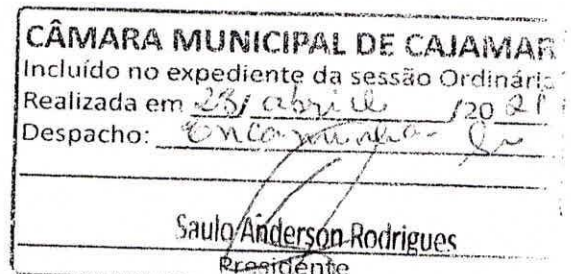 CÂMARA MUNICIPAL DE CAJAMAR
Incluído no expediente da sessão Ordinária
Realizada em 23/ abril /20 21
Despacho: Encaminha-se
Saulo Anderson Rodrigues
Presidente